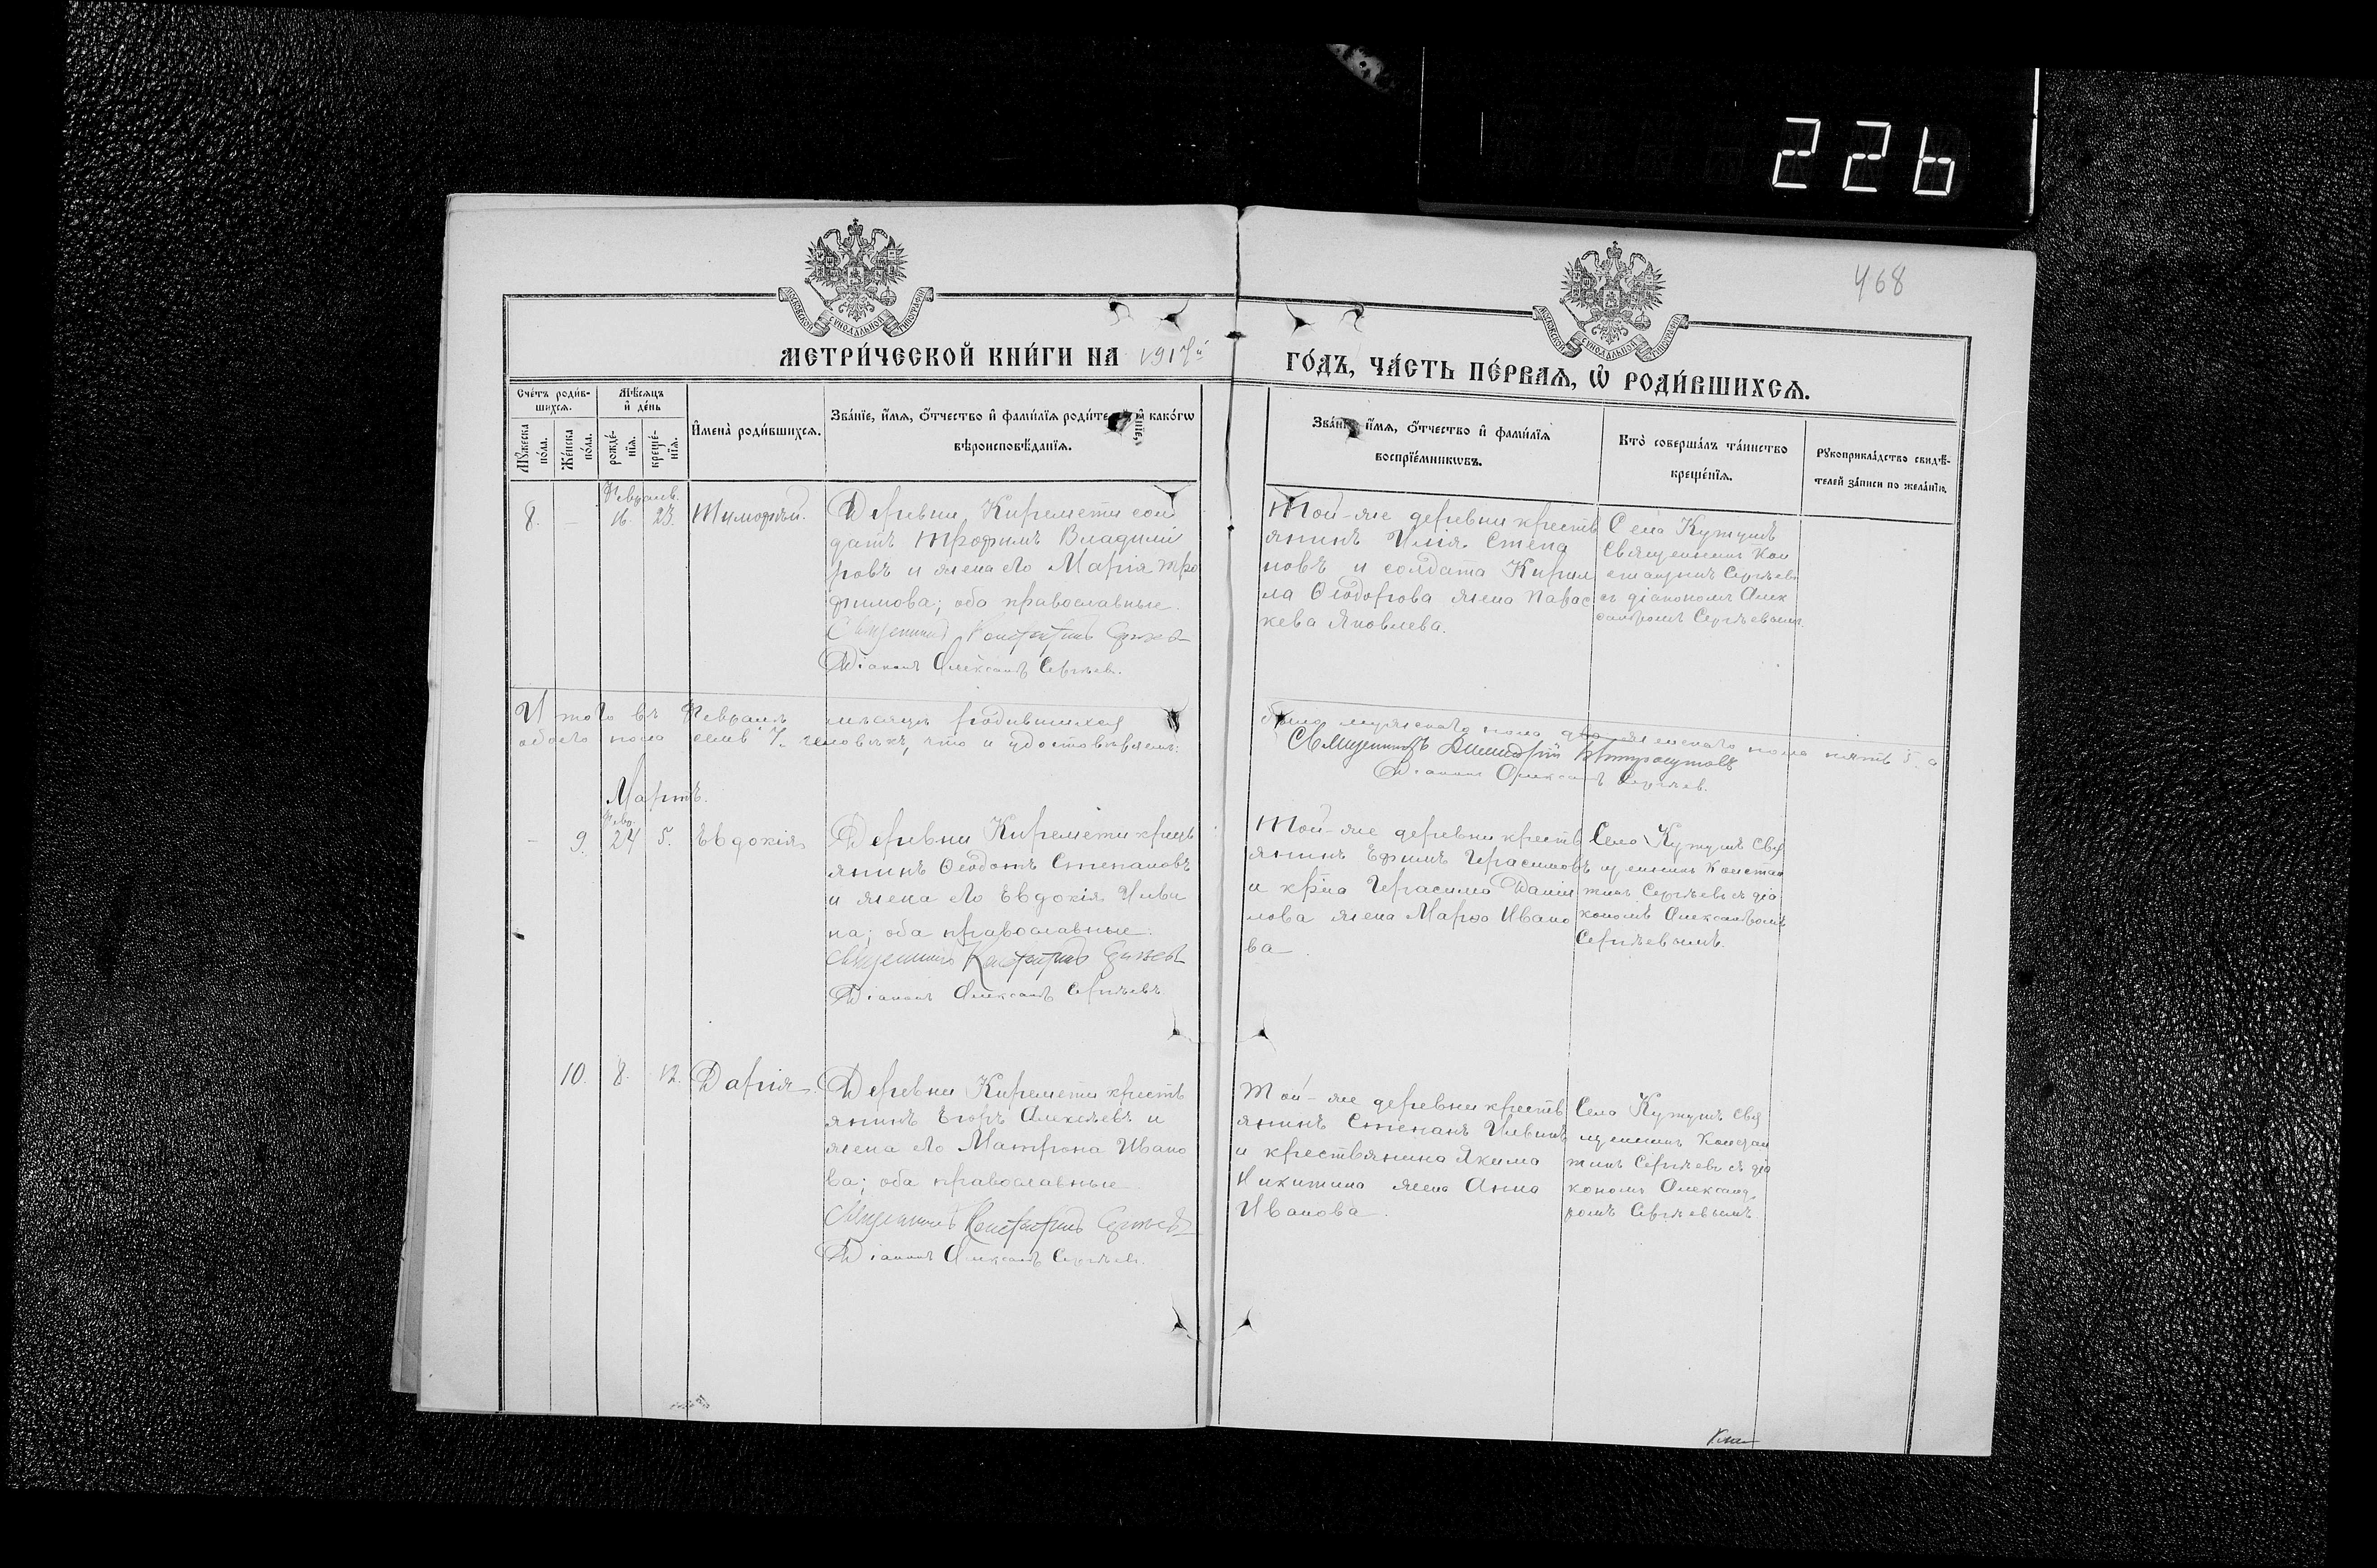 226
468
МОСКОВСКОЙ СѴНОДАЛЬНОЙ ТИПОГРАФІИ
МОСКОВСКОЙ СѴНОДАЛЬНОЙ ТИПОГРАФІИ
МЕТРИ́ЧЕСКОЙ КНИ́ГИ НА 1917й
ГО́ДЪ, ЧА́СТЬ ПЕ́РВАЯ, Ѡ РОДИ́ВШИХСЯ.
Сче́тъ роди́в-
шихся.
Мѣ́сяцъ
и де́нь
Мꙋ́жеска
по́ла.
Же́нска
по́ла.
рожде́-
нїя.
креще́-
нїя.
И҆мена̀ роди́вшихся.
Зва́нїе, и҆́мя, ѻ҆́тчество и҆ фами́лїя роди́те и҆ како́гѡ
вѣроисповѣ́данїя.
Зва́нїе, и҆́мя, ѻ҆́тчество и҆ фами́лїя
воспрїе́мникѡвъ.
Кто̀ соверша́лъ та́инство
креще́нїя.
Рꙋкоприкла́дство свидѣ́-
телей за́писи по жела́нїю.
8. — 16. 23. Тимоѳей.
Деревни Киремети сол
датъ Трофимъ Владими
ровъ и жена его Марія Тро
фимова; оба православные.
Священникъ Константинъ Сергѣевъ
Діаконъ Александръ Сергѣевъ.
Той-же деревни кресть
янинъ Илія Степа
новъ и солдата Кирил
ла Ѳеодорова жена Парас
кева Яковлева.
Села Кутушъ
Священникъ Кон
стантинъ Сергѣевъ
съ діакономъ Алек
сандромъ Сергѣевымъ.
Итого въ Февралѣ мѣсяцѣ родившихся было мужескаго пола два женскаго пола пять 5. а
обоего пола семь 7. человѣкъ, что и удостовѣряемъ:
Священникъ
Діаконъ Александръ Сергѣев.
Мартъ.
Фев.
— 9. 24 5. Евдокія
Деревни Киремети кресть
янинъ Ѳеодотъ Степановъ
и жена его Евдокія Ильи
на; оба православные.
Священникъ Константинъ Сергѣевъ
Діаконъ Александръ Сергѣевъ
Той-же деревни кресть
янинъ Ефимъ Герасимовъ
и кр-на Герасима Дани
лова жена Марѳа Ивано
ва
Села Кутушъ Свя
щенникъ Констан
тинъ Сергѣевъ съ діа
кономъ Александромъ
Сергѣевымъ.
10. 8. 12. Дарія
Деревни Киремети кресть
янинъ Егоръ Алексѣевъ и
жена его Матрона Ивано
ва; оба православные
Священникъ Константинъ Сергѣевъ
Діаконъ Александръ Сергѣевъ.
Той-же деревни кресть
янинъ Степанъ Ильинъ
и крестьянина Якима
Никитина жена Анна
Иванова.
Села Кутушъ Свя
щенникъ Констан
тинъ Сергѣевъ съ діа
кономъ Александ
ромъ Сергѣевымъ